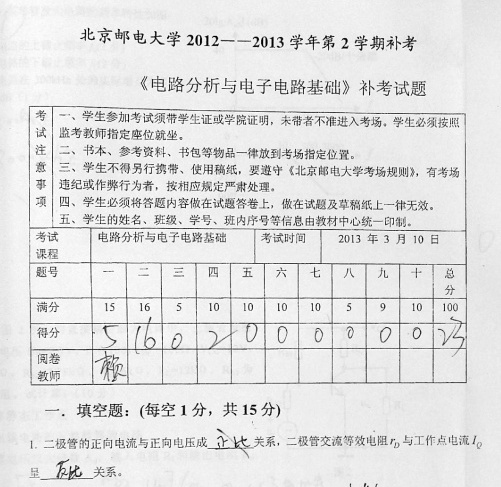 北京邮电大学 2012——2013 学年第 2 学期补考
《电路分析与电子电路基础》补考试题
考试注意事项
一、学生参加考试须带学生证或学院证明，未带者不准进入考场。学生必须按照
监考教师指定座位就坐。
二、书本、参考资料、书包等物品一律放到考场指定位置。
三、学生不得另行携带、使用稿纸，要遵守《北京邮电大学考场规则》，有考场
违纪或作弊行为者，按相应规定严肃处理。
四、学生必须将答题内容做在试题答卷上，做在试题及草稿纸上一律无效。
五、学生的姓名、班级、学号、班内序号等信息由教材中心统一印制。
考试课程 电路分析与电子电路基础 考试时间 2013 年 3 月 10 日
题号 一 二 三 四 五 六 七 八 九 十 总分
满分 15 16 5 10 10 10 10 5 9 10 100
得分 5 16 0 2 0 0 0 0 0 0 23
阅卷教师
一．填空题：(每空 1 分，共 15 分)
1. 二极管的正向电流与正向电压成 正比 关系，二极管交流等效电阻 rD 与工作点电流 IQ
呈 反比 关系。